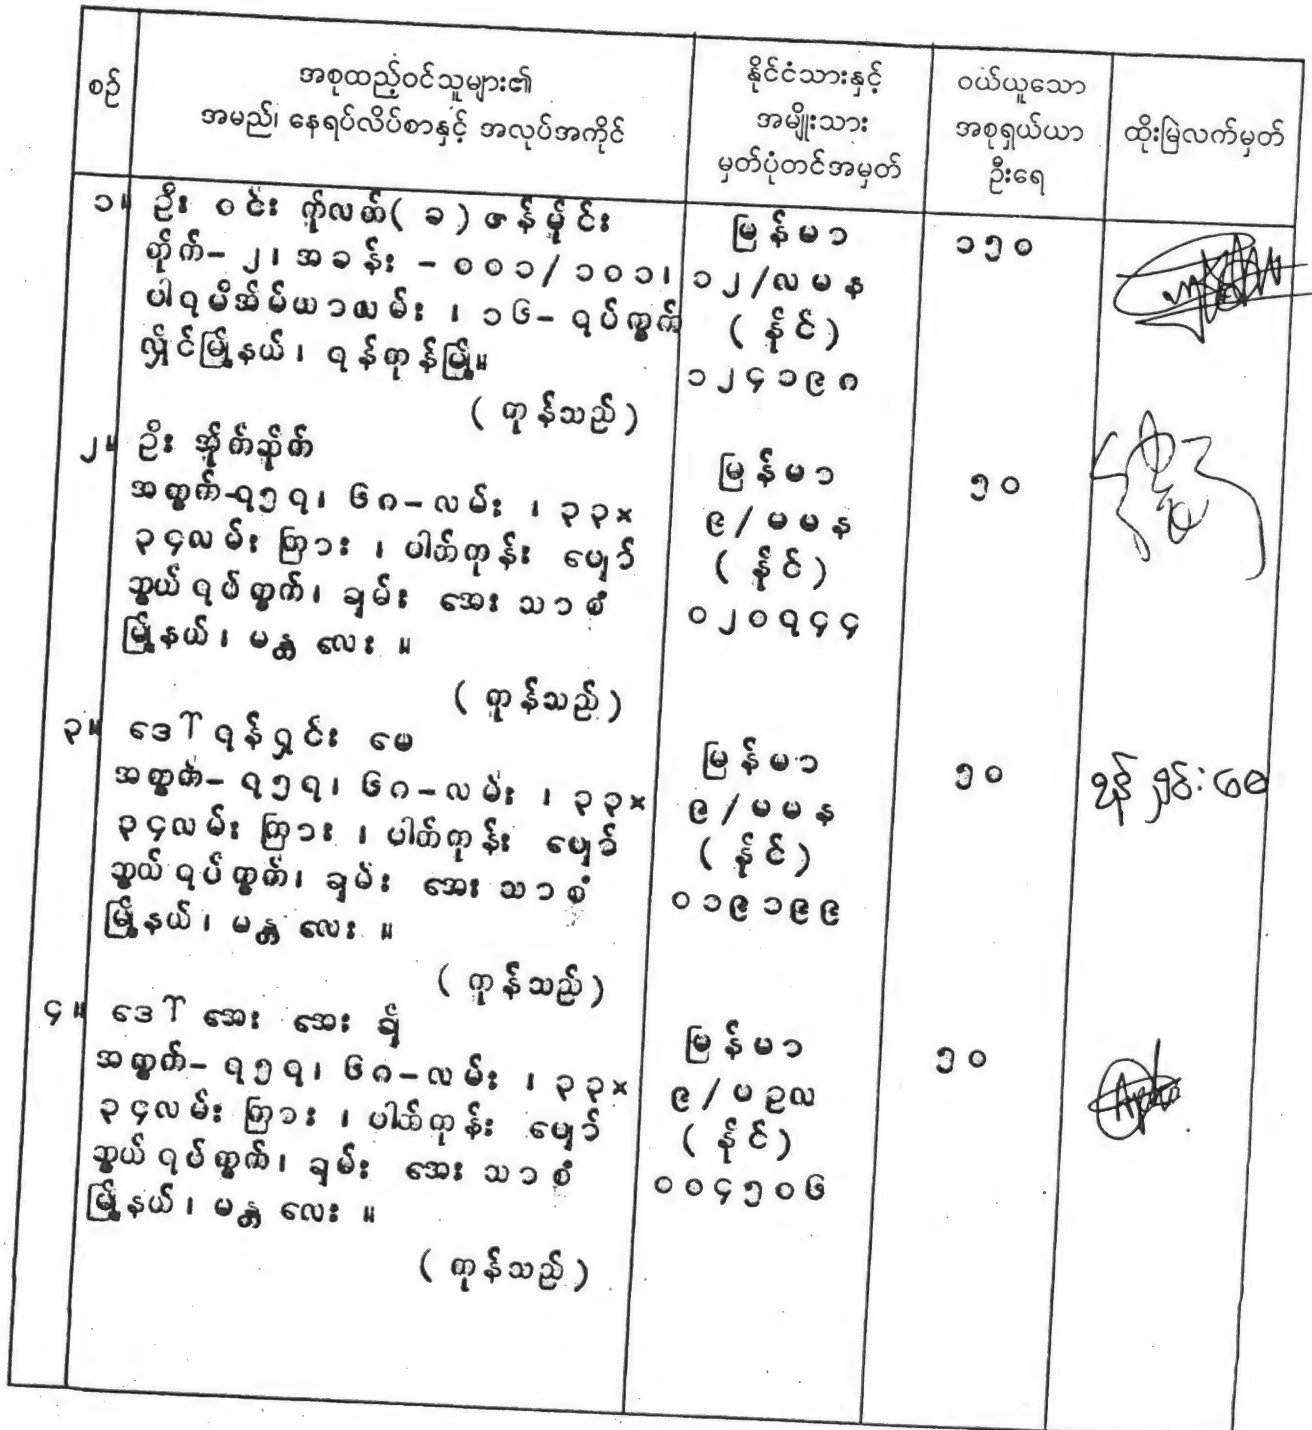 စဉ်
အစုထည့်ဝင်သူများ၏
အမည်၊ နေရပ်လိပ်စာနှင့် အလုပ်အကိုင်
နိုင်ငံသားနှင့်
အမျိုးသား
မှတ်ပုံတင်အမှတ်
ဝယ်ယူသော
အစုရှယ်ယာ
ဦးရေ
ထိုးမြဲလက်မှတ်
၁။ ဦး ဝင်း ကိုလတ်( ခ ) ဇန်မှိုင်း
တိုက်- ၂၊ အခန်း - ၀၀၁/ ၁၀၁၊
ပါရမီအိမ်ယာလမ်း ၊ ၁၆- ရပ်ကွက်
လှိုင်မြို့နယ်၊ ရန်ကုန်မြို့။
( ကုန်သည် )
မြန်မာ
၁၂/လမန
( နိုင် )
၁၂၄၁၉၈
၁၅၀
၂။ ဦး အိုက်ဆိုက်
အကွက်-၇၅၇၊ ၆၈-လမ်း ၊ ၃၃×
၃၄လမ်း ကြား ၊ ပါတ်ကုန်း ပျော်
ဘွယ် ရပ်ကွက်၊ ချမ်း အေး သာ စံ
မြို့နယ်၊ မန္တ လေး ။
( ကုန်သည် )
မြန်မာ
၉/မမန
( နိုင် )
၀၂၀၇၄၄
၅၀
၃။ ဒေါ် ရန်ရှင်း မေ
အကွက်- ၇၅၇၊ ၆၈-လမ်း ၊ ၃၃×
၃၄လမ်း ကြား ၊ ပါတ်ကုန်း ပျော်
ဘွယ် ရပ်ကွက်၊ ချမ်း အေး သာ စံ
မြို့နယ်၊ မန္တ လေး ။
( ကုန်သည် )
မြန်မာ
၉/မမန
( နိုင် )
၀၁၉၁၉၉
၅၀
ရန်ရှင်းမေ
၄။ ဒေါ် အေး အေး ချို
အကွက်- ၇၅၇၊ ၆၈-လမ်း ၊ ၃၃×
၃၄လမ်း ကြား ၊ ပါတ်ကုန်း ပျော်
ဘွယ် ရပ်ကွက်၊ ချမ်း အေး သာ စံ
မြို့နယ်၊ မန္တ လေး ။
( ကုန်သည် )
မြန်မာ
၉/မဥလ
( နိုင် )
၀၀၄၅၀၆
၅၀